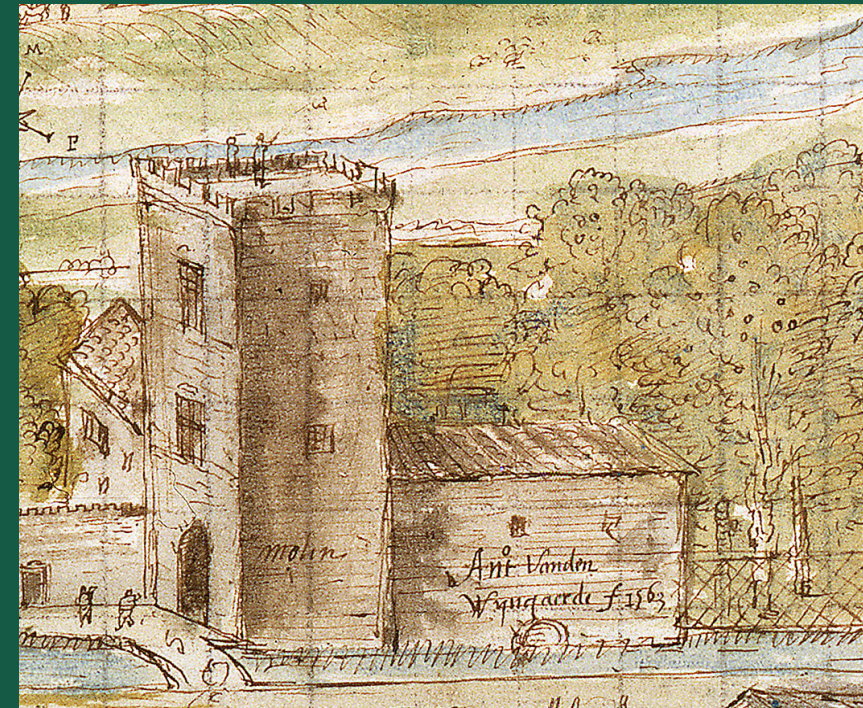 M
F
molin
Ant.º Vanden
Wyngaerde f. 1563